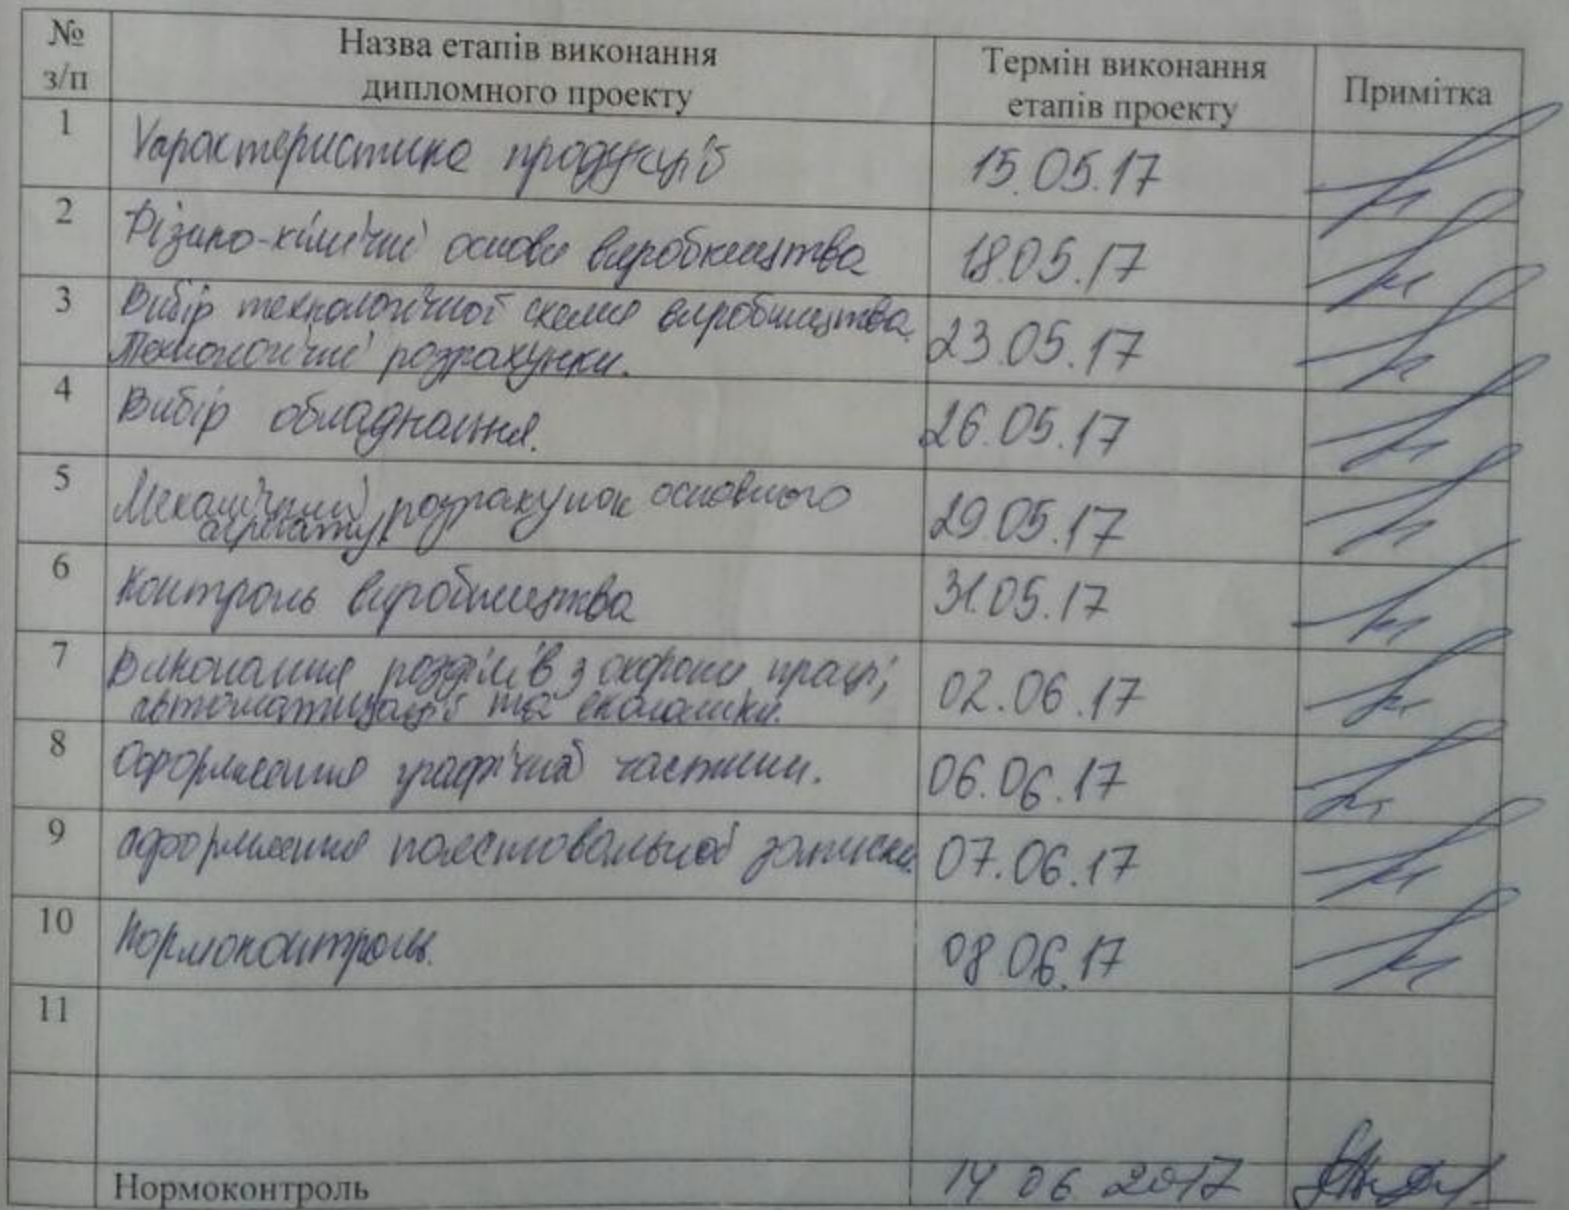 № з/п Назва етапів виконання дипломного проекту Термін виконання етапів проекту Примітка
1 Характеристика продукції 15.05.17
2 Фізико-хімічні основи виробництва 18.05.17
3 Вибір технологічної схеми виробництва. 23.05.17
Технологічні розрахунки.
4 Вибір обладнання. 26.05.17
5 Механічний розрахунок основного 29.05.17
агрегату
6 Контроль виробництва 31.05.17
7 Виконання розділів з охорони праці, 02.06.17
автоматизації та економіки.
8 Оформлення графічної частини. 06.06.17
9 Оформлення пояснювальної записки. 07.06.17
10 Нормоконтроль. 08.06.17
11
Нормоконтроль 14 06 2017